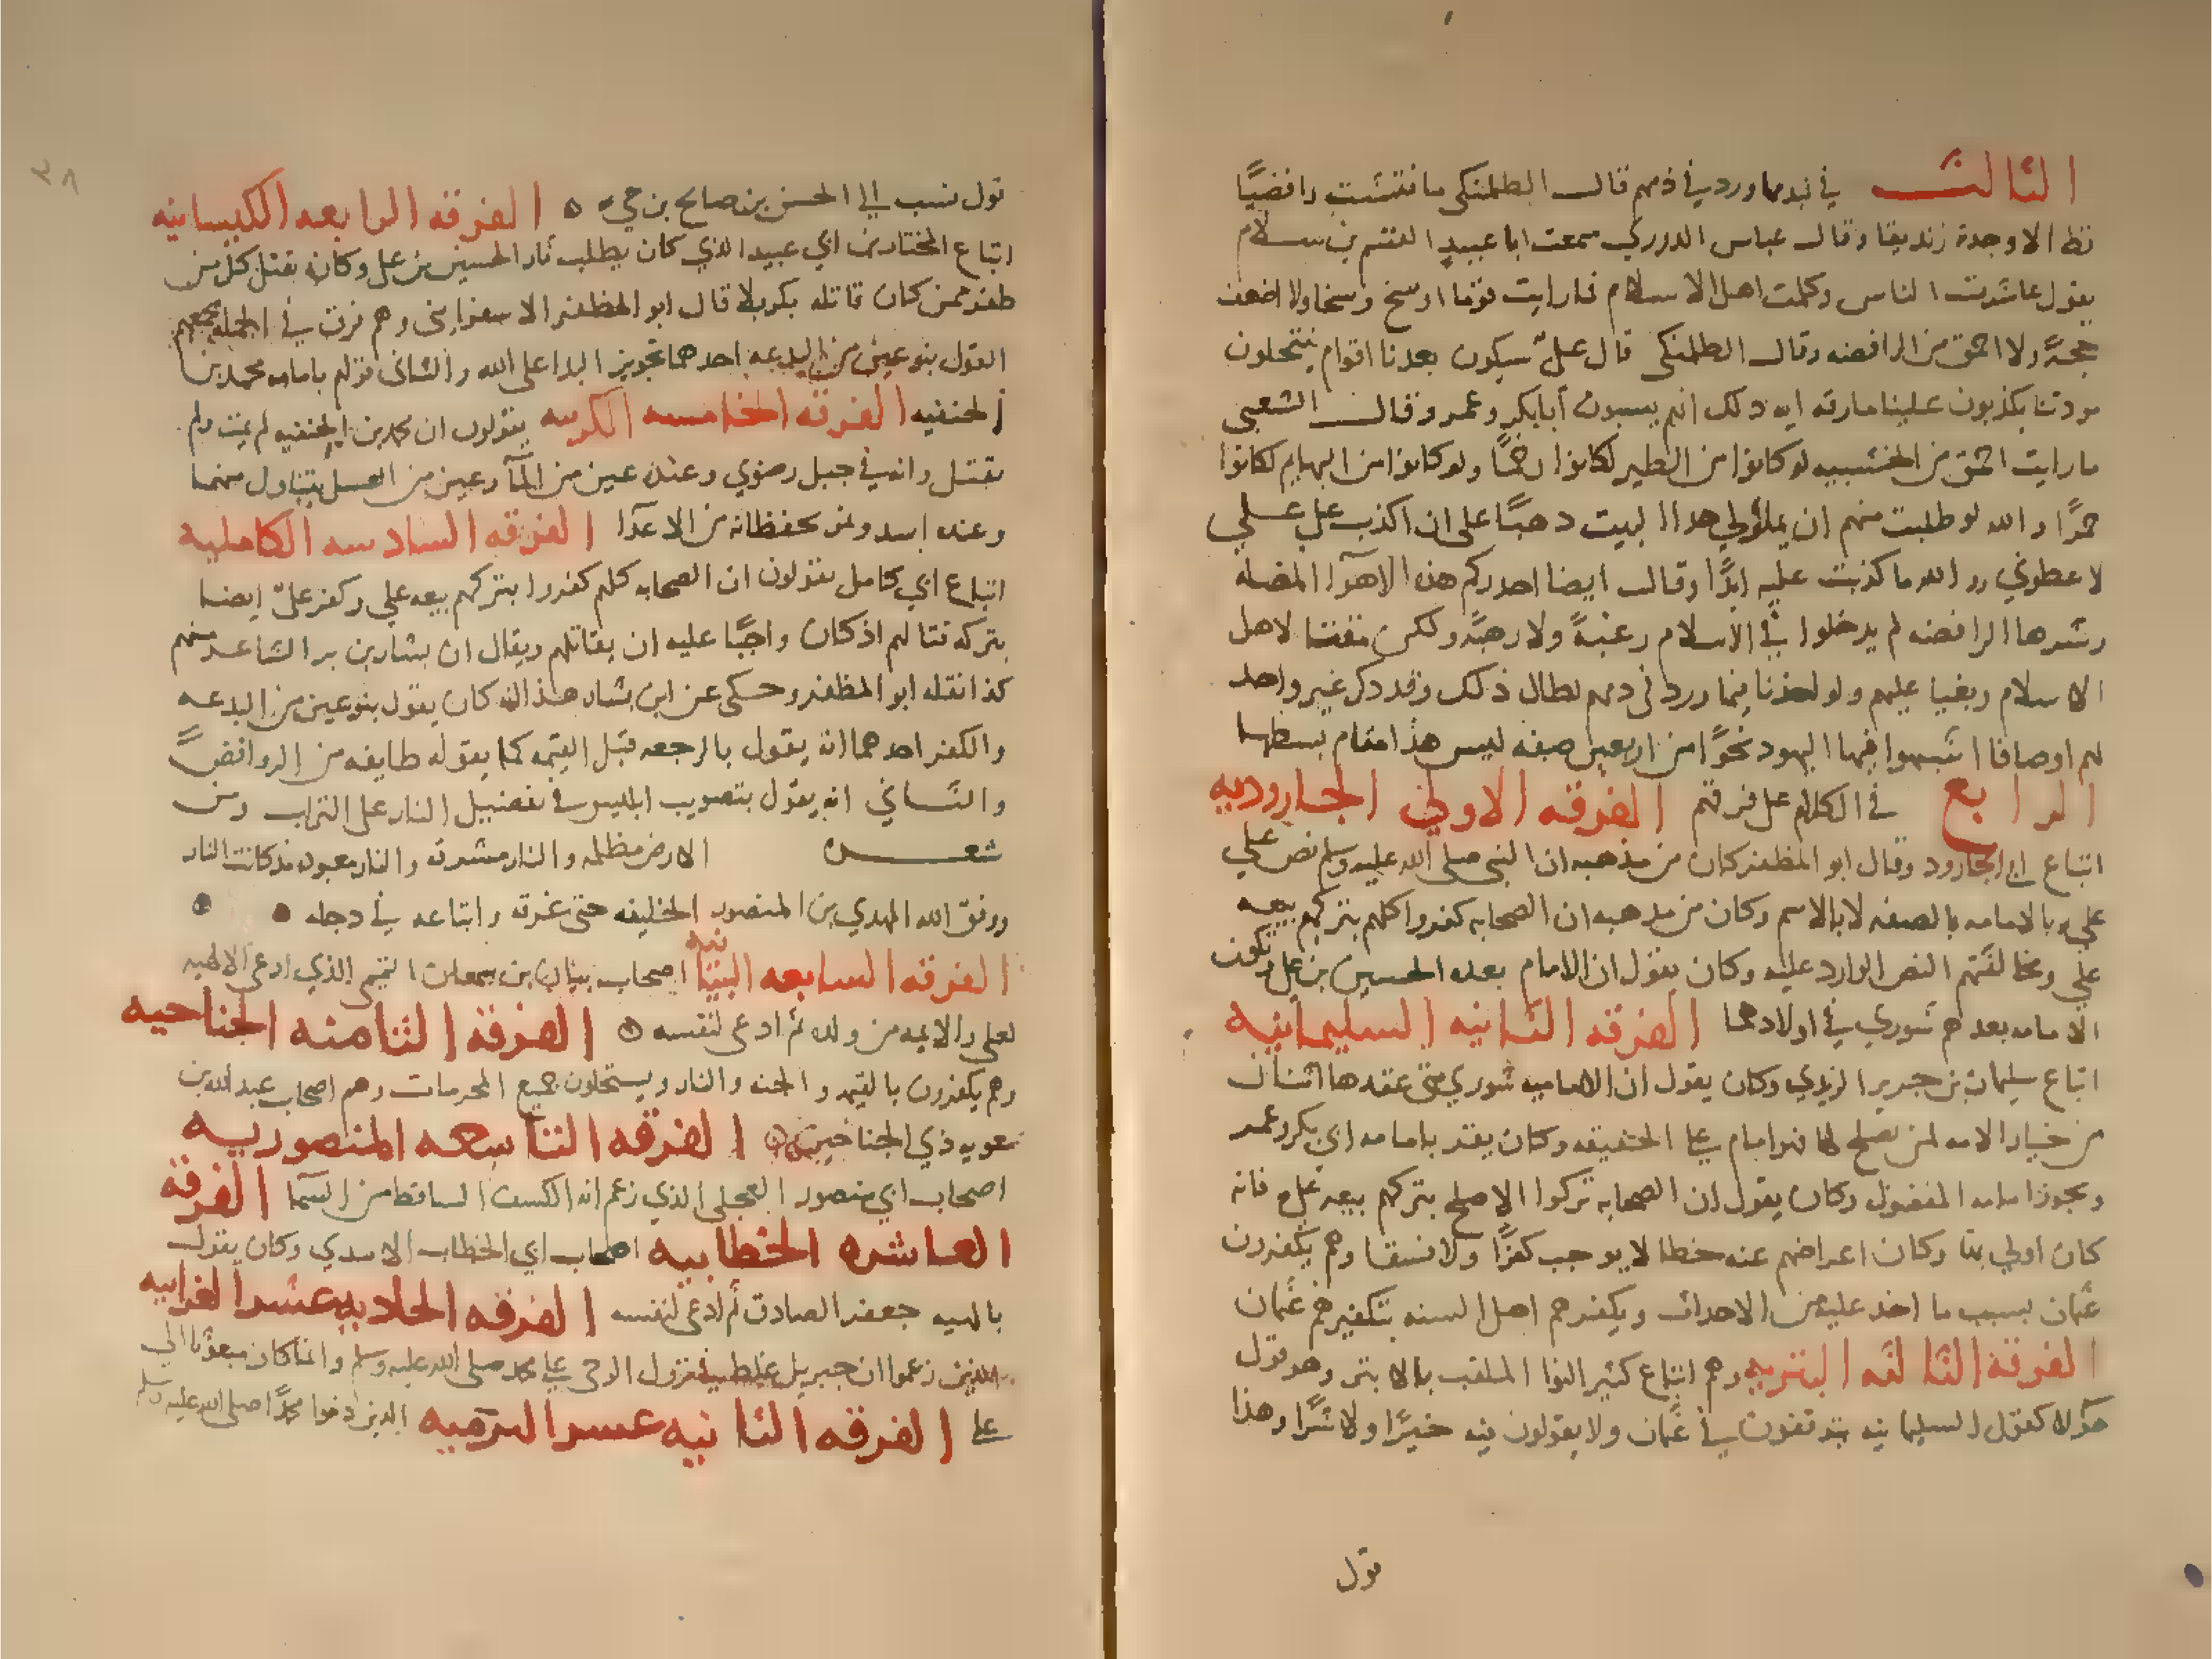 الثالث في نبذ مما ورد في ذمهم قال الطلمنكي ما فتشت رافضيًا
قط الا وجدة زنديقا وقال عباس الدوري سمعت ابا عبيد القسم بن سلام
يقول عاشرت الناس وكلمت اهل الاسلام فما رايت قوما اوسخ وسخا ولا اضعف
حجةً ولا احمق من الرافضه وقال الطلمنكي قال عليّ سيكون بعدنا اقوام ينتحلون
مودتنا يكذبون علينا مارقه ايه ذلك انهم يسبون أبابكر وعمر وقال الشعبي
ما رايت احمق من الخشبيه لو كانوا من الطير لكانوا رخمًا ولو كانوا من البهايم لكانوا
حمرًا والله لو طلبت منهم ان يملؤلي هذا البيت دهبًا على ان اكذب على علي
لاعطوني ووالله ما كذبت عليه ابدًا وقال ايضا احدركم هذه الاهوآ المضله
وشرها الرافضه لم يدخلوا في الاسلام رغبةً ولا رهبةً ولكن مقتا لاهل
الاسلام وبغيا عليهم ولو اخذنا فيما ورد في ذمهم لطال ذلك وقد ذكر غير واحد
لهم اوصافا اشبهوا فيها اليهود نحوًا من اربعين صفه ليس هذا مقام بسطها
الرابع في الكلام على فرقهم الفرقه الاولى الجاروديه
اتباع ابي الجارود وقال ابو المظفر كان من مذهبه ان النبي صلى الله عليه وسلم نص على
علي بالامامه بالصفه لا بالاسم وكان من مدهبه ان الصحابه كفروا كلهم بتركهم بيعه
علي ومخالفتهم النص الوارد عليه وكان يقول ان الامام بعده الحسين بن علي وتكون
الامامه بعدهم شوري في اولادهما الفرقه الثانيه السليمانيه
اتباع سليمان بن جرير الزيدي وكان يقول ان الامامه شوري متى عقدها اثنان
من خيار الامه لمن يصلح لها فهو امام على الحقيقه وكان يقر بامامه ابي بكر وعمر
ويجوز امامه المفضول وكان يقول ان الصحابه تركوا الاصلح بتركهم بيعه علي فانه
كان اولي بها وكان اعراضهم عنه خطا لا يوجب كفرًا ولا فسقا وهم يكفرون
عثمان بسبب ما اخذ عليه من الاحداث ويكفرهم اهل السنه بتكفيرهم عثمان
الفرقة الثالثه البتريه وهم اتباع كثير النوا الملقب بالابتر وهو قول
هؤلا كقول السليمانيه يتوقفون في عثمان ولا يقولون فيه خيرًا ولا شرًا وهذا
قول
٣٨
قول نسب الي الحسن بن صالح بن حي الفرقه الرابعه الكيسانيه
اتباع المختار بن ابي عبيد الذي كان يطلب ثار الحسين بن علي وكان يقتل كل من
ظفر ممن كان قاتله بكربلا قال ابو المظفر الاسفرايني وهم فرق في الجمله يجمعهم
القول بنوعين من البدعه احدهما تجويز البدا على الله والثاني قولهم بامامه محمد بن
الحنفيه الفرقه الخامسه الكربيه يقولون ان محمد بن الحنفيه لم يمت ولم
يقتل وانه في جبل رضوي وعنده عين من المآ وعين من العسل يتناول منهما
وعنده اسد ونمر يحفظانه من الاعدآ الفرقه السادسه الكامليه
اتباع ابي كامل يقولون ان الصحابه كلهم كفروا بتركهم بيعه علي وكفر عليّ ايضا
بتركه قتالهم اذ كان واجبًا عليه ان يقاتلهم ويقال ان بشار بن برد الشاعر منهم
كذا نقله ابو المظفر وحكى عن ابن بشار هذا انه كان يقول بنوعين من البدعه
والكفر احدهما انه يقول بالرجعه قبل القيمه كما يقوله طايفه من الروافض
والثاني انه يقول بتصويب ابليس في تفضيل النار على التراب ومن
شعره الارض مظلمه والنار مشرقه والنار معبوده مذ كانت النار
ووفق الله المهدي بن المنصور الخليفه حتى غرقه واتباعه في دجله
الفرقه السابعه البيانيه اصحاب بيان بن سمعان التميمي الذي ادعى الالهيه
لعلي والايمه من ولده ثم ادعى لنفسه الفرقه الثامنه الجناحيه
وهم يكفرون بالقيمه والجنه والنار ويستحلون جميع المحرمات وهم اصحاب عبد الله بن
معويه ذي الجناحين الفرقه التاسعه المنصوريه
اصحاب ابي منصور العجلي الذي زعم انه الكسف الساقط من السمآ الفرقه
العاشره الخطابيه اصحاب ابي الخطاب الاسدي وكان يقول
بالهيه جعفر الصادق ثم ادعى لنفسه الفرقه الحاديه عشر الغرابيه
الذين زعموا ان جبريل غلط في نزول الوحي على محمد صلى الله عليه وسلم وانما كان مبعوثا الي
علي الفرقه الثانيه عسر الذميه الذين ذموا محمدًا صلى الله عليه وسلم